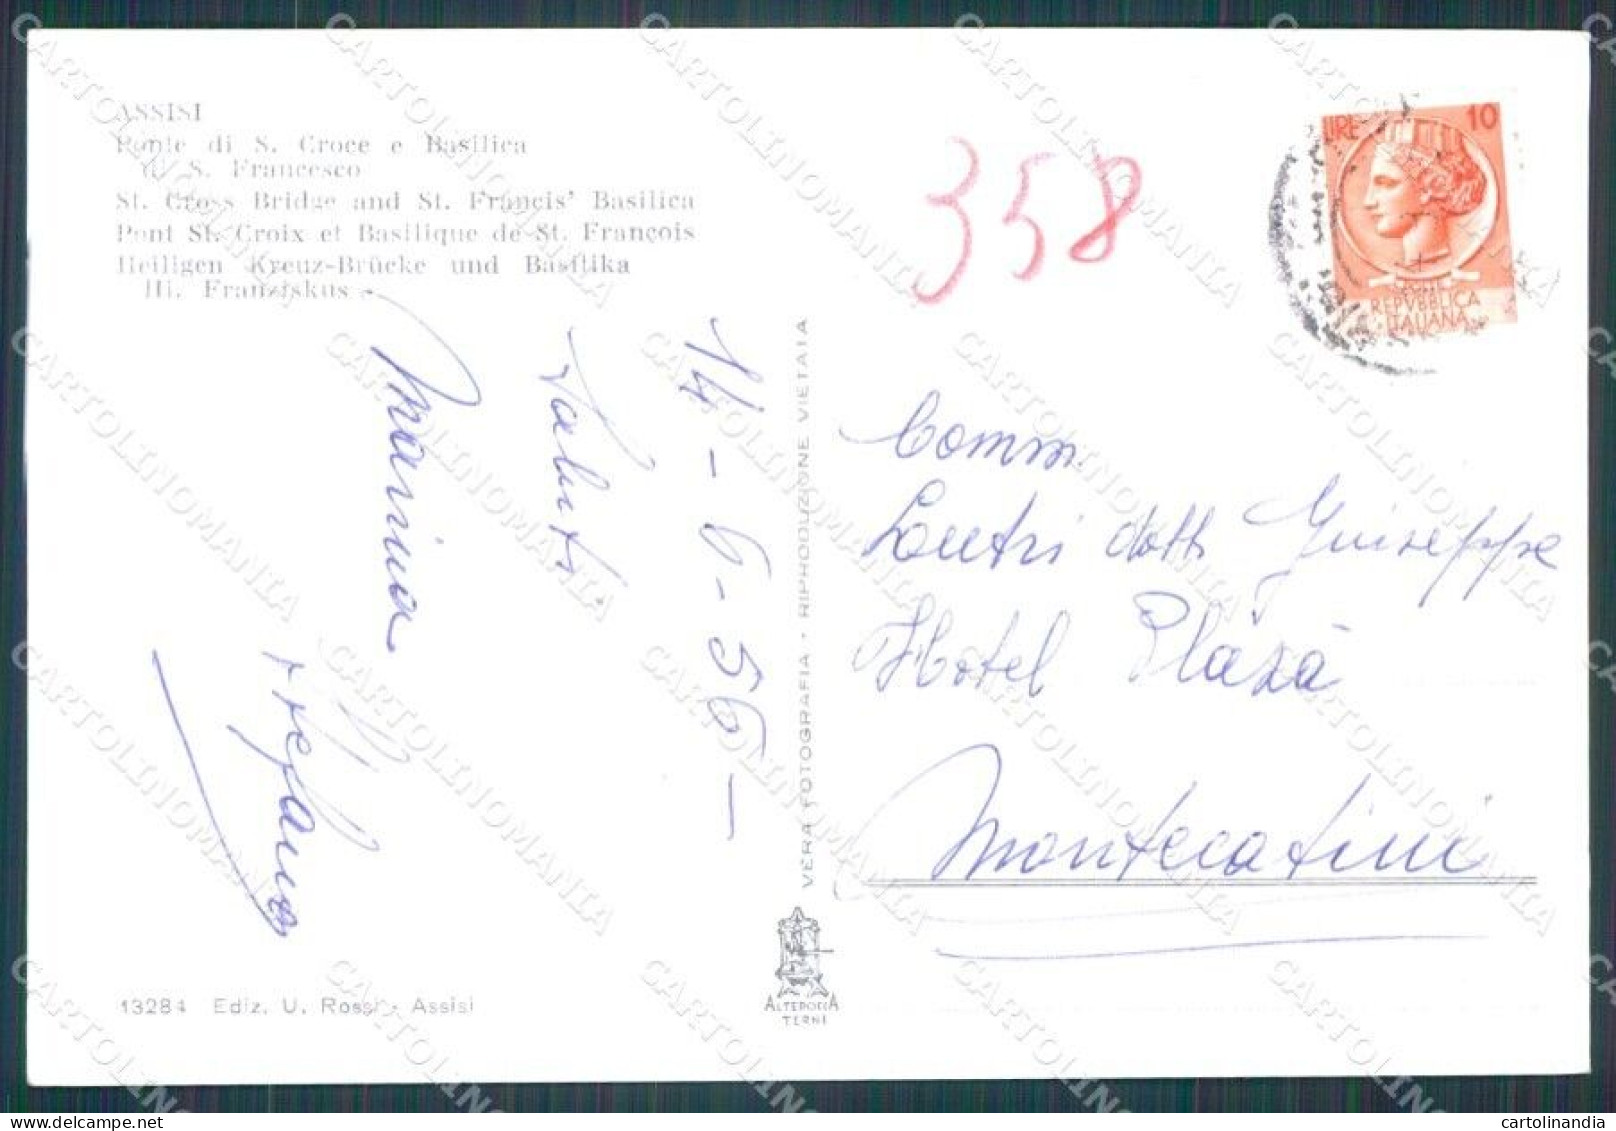 ASSISI
Ponte di S. Croce e Basilica
di S. Francesco
St. Cross Bridge and St. Francis' Basilica
Pont St. Croix et Basilique de St. François
Heiligen Kreuz-Brücke und Basilika
Hl. Franziskus
358
LIRE 10
REPVBBLICA
ITALIANA
14-6-56-
Saluti
Marina
+ Stefano
VERA FOTOGRAFIA - RIPRODUZIONE VIETATA
Comm.
Lautri dott Giuseppe
Hotel Plaza
Montecatini
13284 Ediz. U. Rossi - Assisi
ALTEROCCA
TERNI
CARTOLINOMANIA
cartolinandia